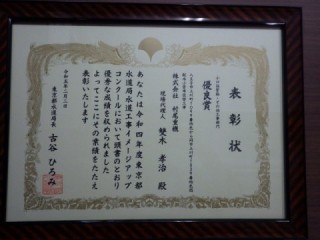 表彰状
優良賞
株式会社 村尾重機
現場代理人 雙木 孝治 殿
あなたは令和四年度東京都
水道局水道工事イメージアップ
コンクールにおいて頭書のとおり
優秀な成績を収められました
よってここにその業績をたたえ
表彰いたします
令和五年二月二日
東京都水道局長
古谷 ひろみ